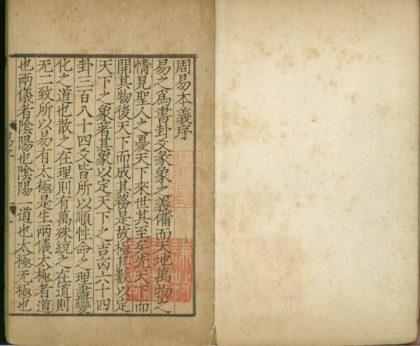 周易本義序
易之爲書卦爻彖象之義備而天地萬物之
情見聖人之憂天下來世其至矣先天下而
開其物後天下而成其務是故極其數以定
天下之象著其象以定天下之吉凶六十四
卦三百八十四爻皆所以順性命之理盡變
化之道也散之在理則有萬殊統之在道則
无二致所以易有太極是生兩儀太極者道
也兩儀者陰陽也陰陽一道也太極无極也